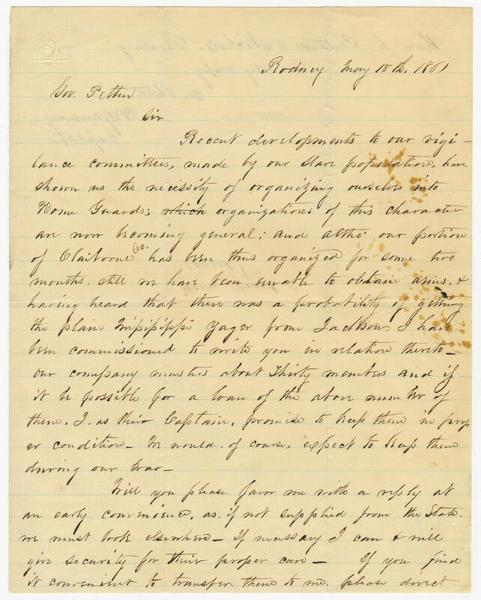 Rodney May 18th, 1861
Gov. Pettus
Sir
Recent developments to our vigi-
lance committees, made by our slave population, have
shown us the necessity of organizing ourselves into
Home Guards; which organizations of this character
are now becoming general; and altho our portion
of Claiborne Co. has been thus organized for some two
months. still we have been unable to obtain arms, &
having heard that there was a probability of getting
the plain Mississippi Yager from Jackson, I have
been commissioned to write you in relation thereto_
our company musters about Thirty members and if
it be possible for a loan of the above number of
them, I, as their Captain, promise to keep them in prop
er condition_ We would, of course, expect to keep them
during our war_
Will you please favor me with a reply at
an early convenience, as if not supplied from the State
we must look elsewhere_ If necessary I can & will
give security for their proper care_ If you find
it convenient to transfer them to me. please direct